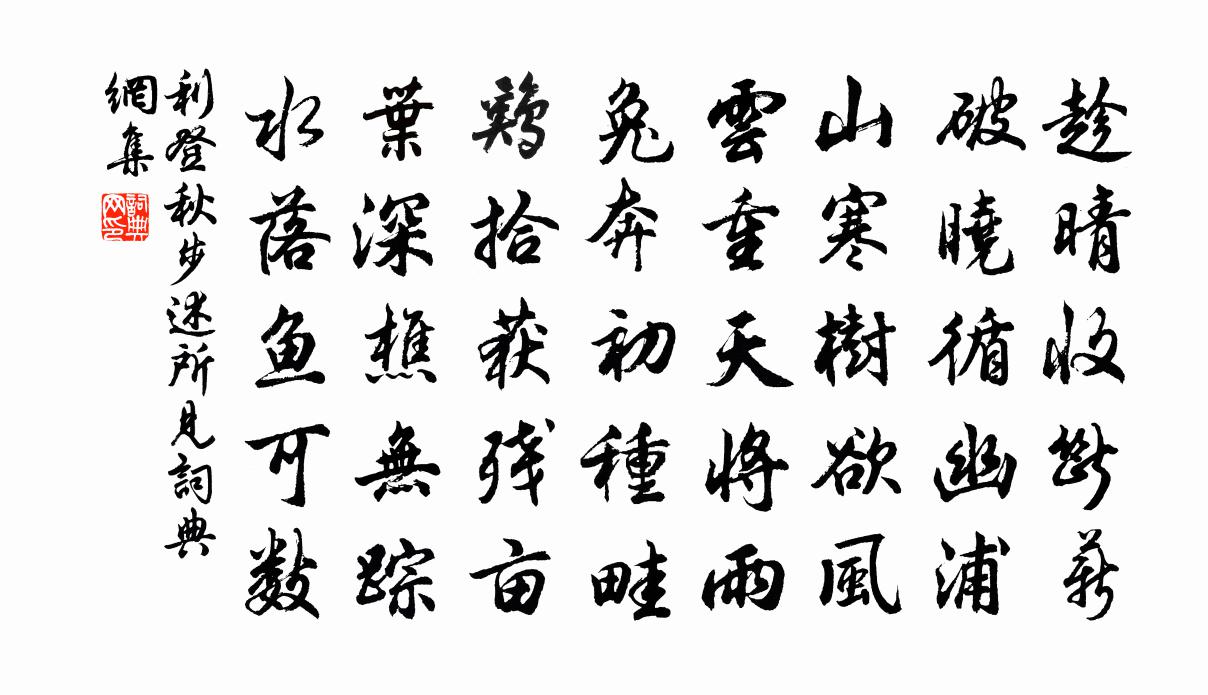 趁晴收斷薪
破曉循幽浦
山寒樹欲風
雲重天將雨
兔奔初種畦
鷄拾获残亩
葉深樵無踪
水落鱼可数
利登秋步述所見詞典
網集
詞典
网印